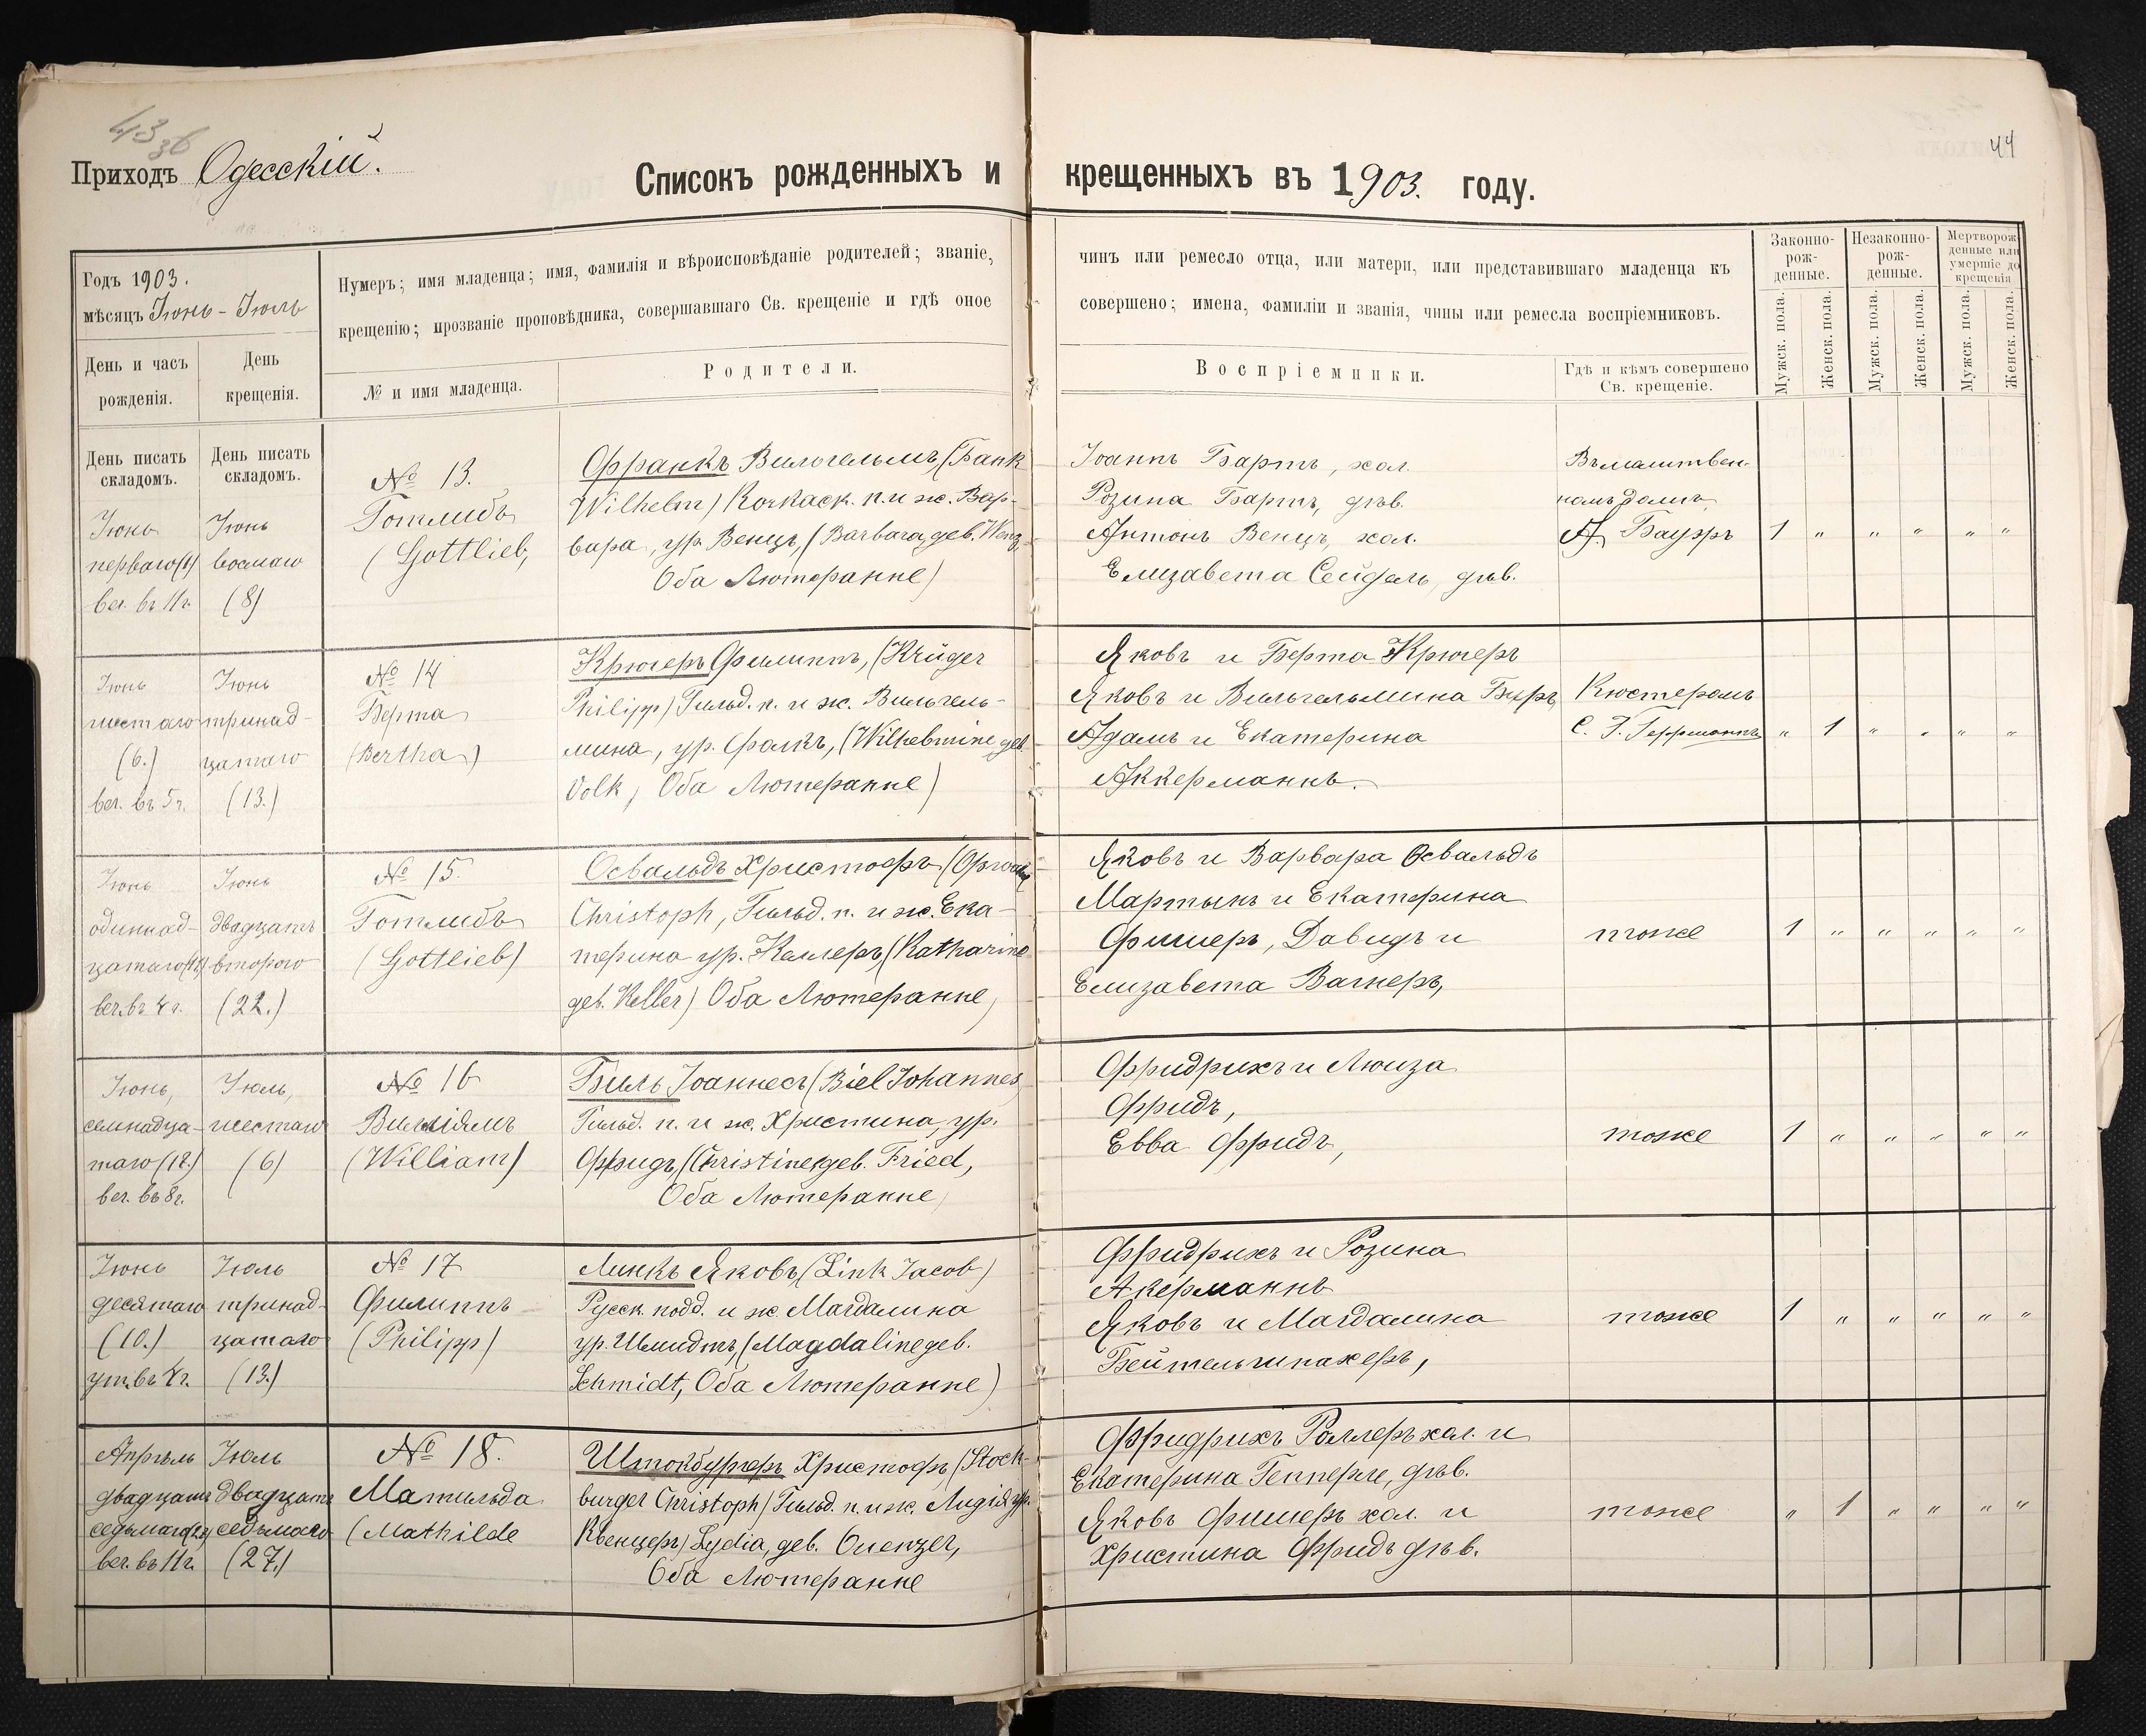 43 об
Приходъ Одесскій.
Списокъ рожденныхъ и крещенныхъ въ 1903. году.
44
Годъ 1903.
мѣсяцъ Іюнь - Іюль
День и часъ рожденія.
День крещенія.
Нумеръ; имя младенца; имя, фамилія и вѣроисповѣданіе родителей; званіе, чинъ или ремесло отца, или матери, или представившаго младенца къ
крещенію; прозваніе проповѣдника, совершавшаго Св. крещеніе и гдѣ оное совершено; имена, фамиліи и званія, чины или ремесла воспріемниковъ.
№ и имя младенца.
Родители.
Воспріемники.
Гдѣ и кѣмъ совершено
Св. крещеніе.
Законно-
рож-
денные.
Незаконно-
рож-
денные.
Мертворож
денные или
умершіе до
крещенія
Мужск. пола.
Женск. пола.
Мужск. пола.
Женск. пола.
Мужск. пола.
Женск. пола.
День писать
складомъ.
День писать
складомъ.
Іюнь
перваго (1)
веч. въ 11 ч.
Іюнь
восьмаго
(8)
№ 13.
Готлибъ
(Gottlieb,
Франкъ Вильгельмъ, (Fank
Wilhelm) п. и ж. Вар-
вара, ур. Венцъ, (Barbara, geb. Wenz,
Оба Лютеране)
Іоаннъ Бартъ, хол.
Розина Бартъ, дѣв.
Антонъ Венцъ, хол.
Елизавета Сейдель, дѣв.
номъ домѣ
А. Бауэръ
1 " " " " "
Іюнь
шестаго
(6.)
веч. въ 5 ч.
Іюнь
тринад-
цатаго
(13.)
№ 14
Берта
(Bertha)
Крюгеръ Филиппъ, (Krüger
Philipp) Гильд. п. и ж. Вильгель-
мина, ур. Фолкъ, (Wilhelmine geb
Volk, Оба Лютеране)
Яковъ и Берта Крюгеръ
Яковъ и Вильгельмина Биръ
Адамъ и Екатерина
Аккерманнъ.
Кюстеромъ
Геррманнъ
" 1 " " " "
Іюнь
одиннад-
цатаго (11)
веч. въ 4 ч.
Іюнь
двадцать
втораго
(22.)
№ 15.
Готлибъ
(Gottlieb)
Освальдъ Христофъ
Christoph, Гильд. п. и ж. Ека-
терина ур. Келлеръ, (Katharine
geb. Keller) Оба Лютеране,
Яковъ и Варвара Освальдъ
Мартынъ и Екатерина
Фишеръ, Давидъ и
Елизавета Вагнеръ,
тоже
1 " " " " "
Іюнь,
семнадца-
таго
веч. въ 8 ч.
Іюль,
шестаго
(6)
№ 16
Вилліямъ
(William)
Биль Іоаннесъ (Biel Johannes,
Гильд. п. и ж. Христина, ур.
Фридъ, (Christine, geb. Fried,
Оба Лютеране,
Фридрихъ и Люиза
Фридъ,
Евва Фридъ,
тоже
1 " " " " "
Іюнь
десятаго
(10.)
ут. въ 4 ч.
Іюль
тринад-
цатаго
(13.)
№ 17
Филиппъ
(Philipp)
Линкъ Яковъ, (Link Jacob)
Русск. подд. и ж. Магдалина
ур. Шмидтъ, (Magdaline geb.
Schmidt, Оба Лютеране)
Фридрихъ и Розина
Акерманнъ
Яковъ и Магдалина
Бейтельшпахеръ,
тоже
1 " " " " "
Апрѣль
двадцать
седьмаго
веч. въ 11 ч.
Іюль
двадцать
седьмаго
(27.)
№ 18.
Матильда
(Mathilde
Штокбургеръ Христофъ, (Stock-
burger Christoph) Гильд. п. и ж. Лидія ур.
Квенцеръ) Lydia, geb. Quenzer,
Оба Лютеране
Фридрихъ Роллеръ хол. и
Екатерина Гепперле, дѣв.
Яковъ Фишеръ хол. и
Христина Фридъ дѣв.
тоже
" 1 " " " "